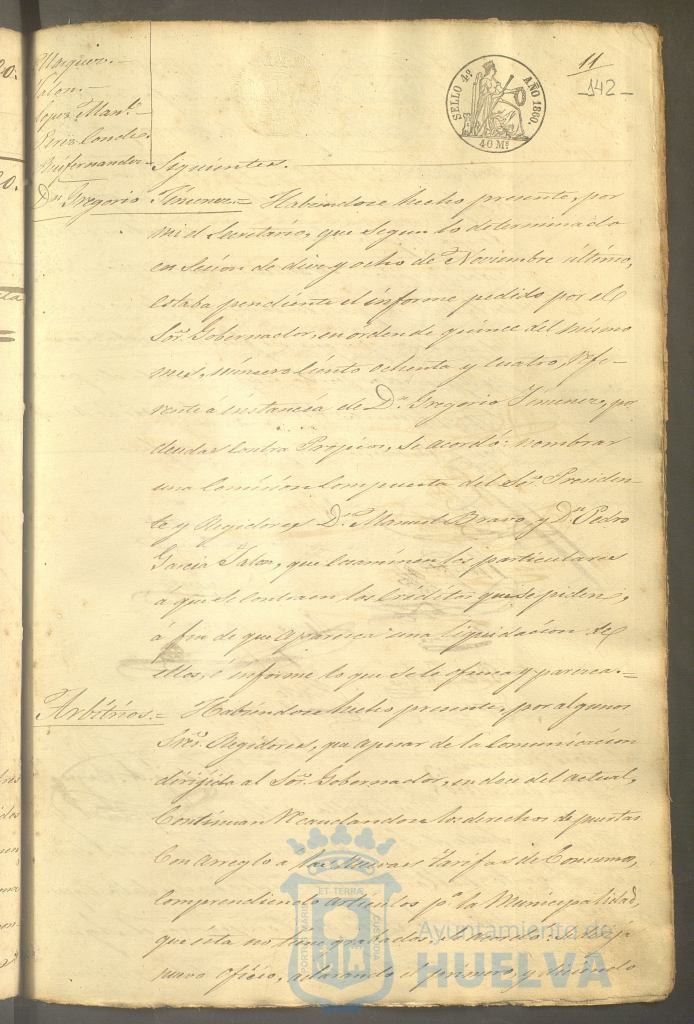 11
142
SELLO 4º AÑO 1860.
40 Ms
Marquez.=
Jalon.=
Lopez Manl.
Perez Conde.
Siguientes.
Dn. Gregorio Jimenez.= Habiendose hecho presente, por
mi el Secretario, que segun lo determinado
en Sesion de diez y ocho de Noviembre último,
estaba pendiente el informe pedido por el
Sor. Gobernador, en órden de quince del mismo
mes, número ciento ochenta y cuatro, refe-
rente á instancia de Dn. Gregorio Jimenez, por
deudas contra Propios, se acordó: nombrar
una Comision compuesta del Sr. Presiden-
te y Regidores Dn. Manuel Bravo y Dn. Pedro
Garcia Jalon, que examinen los particulares
á que se contraen los créditos que se piden,
á fin de que aparezca una liquidacion de
ellos, é informe lo que se le ofrezca y parezca.=
Arbitrios.= Habiendose hecho presente, por algunos
Sres. Regidores, que apesar de la Comunicacion
dirijida al Sor. Gobernador, en doce del actual,
Continuan recaudandose los derechos de puertas
Con arreglo a las Nuevas Tarifas de Consumos,
Comprendiendo articulos pa. la Municipalidad,
que esta no tiene grabados, se acordó: se dirija
nuevo oficio, aclarando el primero, y diciendo
PORTUS MARIS ET TERRAE CUSTODIA
Ayuntamiento de
HUELVA